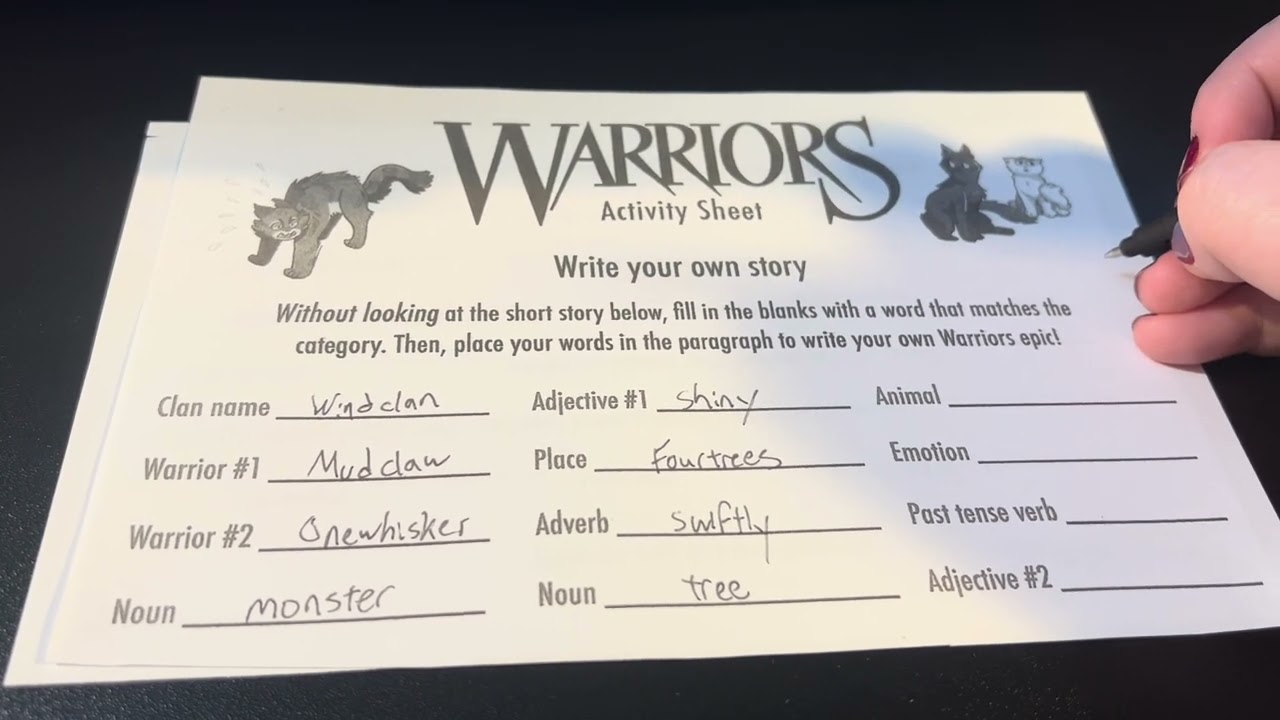 WARRIORS
Activity Sheet
Write your own story
Without looking at the short story below, fill in the blanks with a word that matches the
category. Then, place your words in the paragraph to write your own Warriors epic!
Clan name Windclan Adjective #1 shiny Animal
Warrior #1 Mudclaw Place Fourtrees Emotion
Warrior #2 Onewhisker Adverb swiftly Past tense verb
Noun monster Noun tree Adjective #2